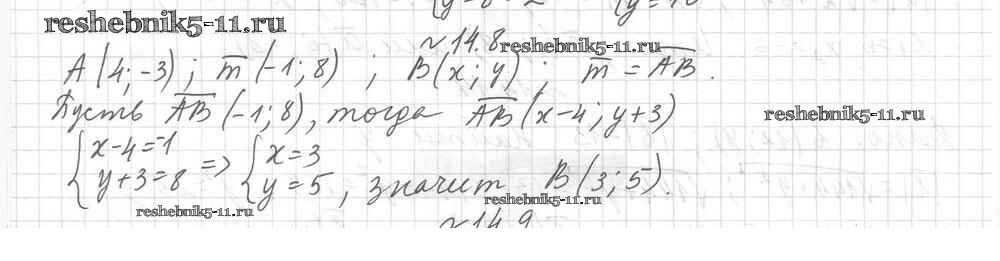 reshebnik5-11.ru
№14.8 reshebnik5-11.ru
A(4;-3); m(-1;8) ; B(x;y) ; m = AB.
Пусть AB(-1;8), тогда AB(x-4;y+3) reshebnik5-11.ru
{x-4=1 => {x=3
{y+3=8 {y=5, значит B(3;5).
reshebnik5-11.ru reshebnik5-11.ru
№14.9